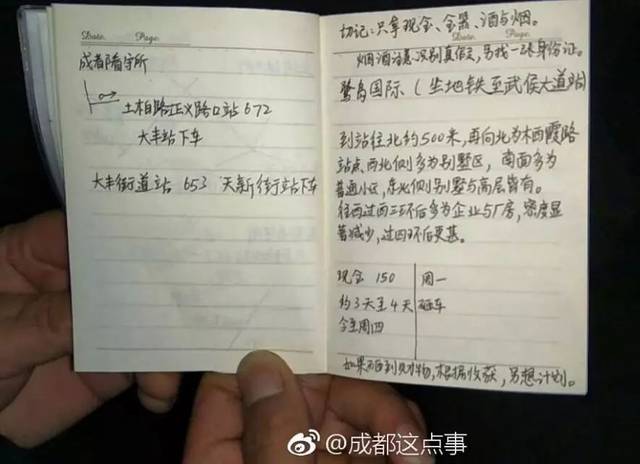 Date. Page.
成都看守所
土柏路正义路口站 672
大丰站下车
大丰街道站 653 天新街站下车
切记:只拿现金、金器、酒与烟。
Date. Page.
烟酒注意识别真假,另找一张身份证。
鹭岛国际、(坐地铁至武侯大道站)
到站往北约500米,再向北为木西霞路
站点西北侧多为别墅区,南面多为
普通小区,东北侧别墅与高层皆有。
往西过西三环后多为企业与厂房,密度显
著减少,过四环后更甚。
现金 150 周一
约3天至4天 砸车
今至周四
如果碰到财物,根据收获,另想计划。
@成都这点事